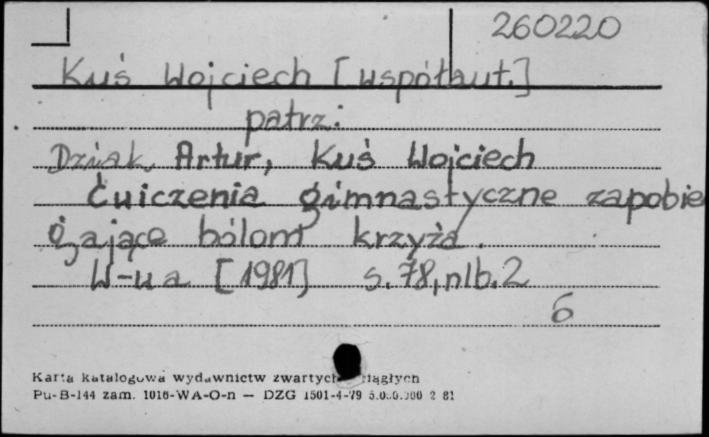 260220
Kuś Wojciech [współaut.]
patrz:
Dziak, Artur, Kuś Wojciech
Ćwiczenia gimnastyczne zapobie
gające bólom krzyża.
W-wa [1981] s. 78, nlb. 2
6
Karta katalogowa wydawnictw zwartych
Pu-B-144 zam. 1016-WA-O-n — DZG 1501-4-79 2 81